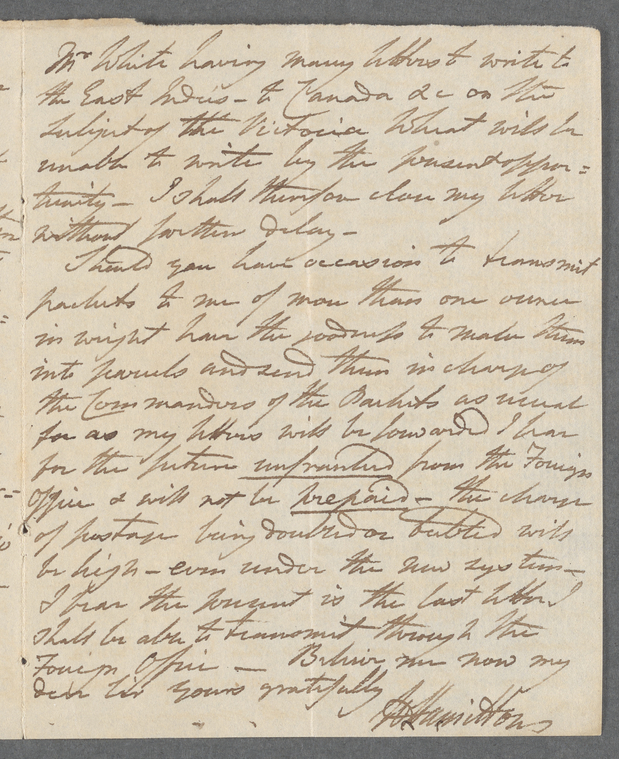 Mr White having many letters to write to
the East Indies – to Canada &c on the
subject of the Victoria Wheat will be
unable to write by the present oppor=
tunity – I shall therefore close my letter
without further delay –
Should you have occasion to transmit
packets to me of more than one ounce
in weight have the goodness to make them
into parcels and send them in charge of
the Commanders of the Packets as usual
for as my letters will be forwarded I hear
for the future unfranked from the Foreign
Office & will not be prepaid – the charge
of postage being doubled or trebled will
be high – even under the new system –
I fear the present is the last letter I
shall be able to transmit through the
Foreign Office — Believe me now my
dear Sir yours gratefully
Hamilton